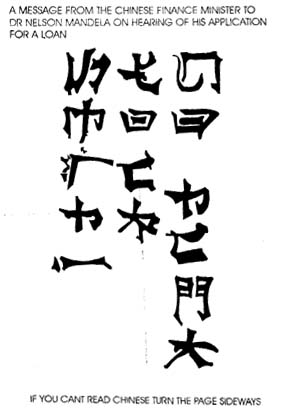 A MESSAGE FROM THE CHINESE FINANCE MINISTER TO
DR NELSON MANDELA ON HEARING OF HIS APPLICATION
FOR A LOAN
GO FUCK
YOUR
SELF !
IF YOU CANT READ CHINESE TURN THE PAGE SIDEWAYS